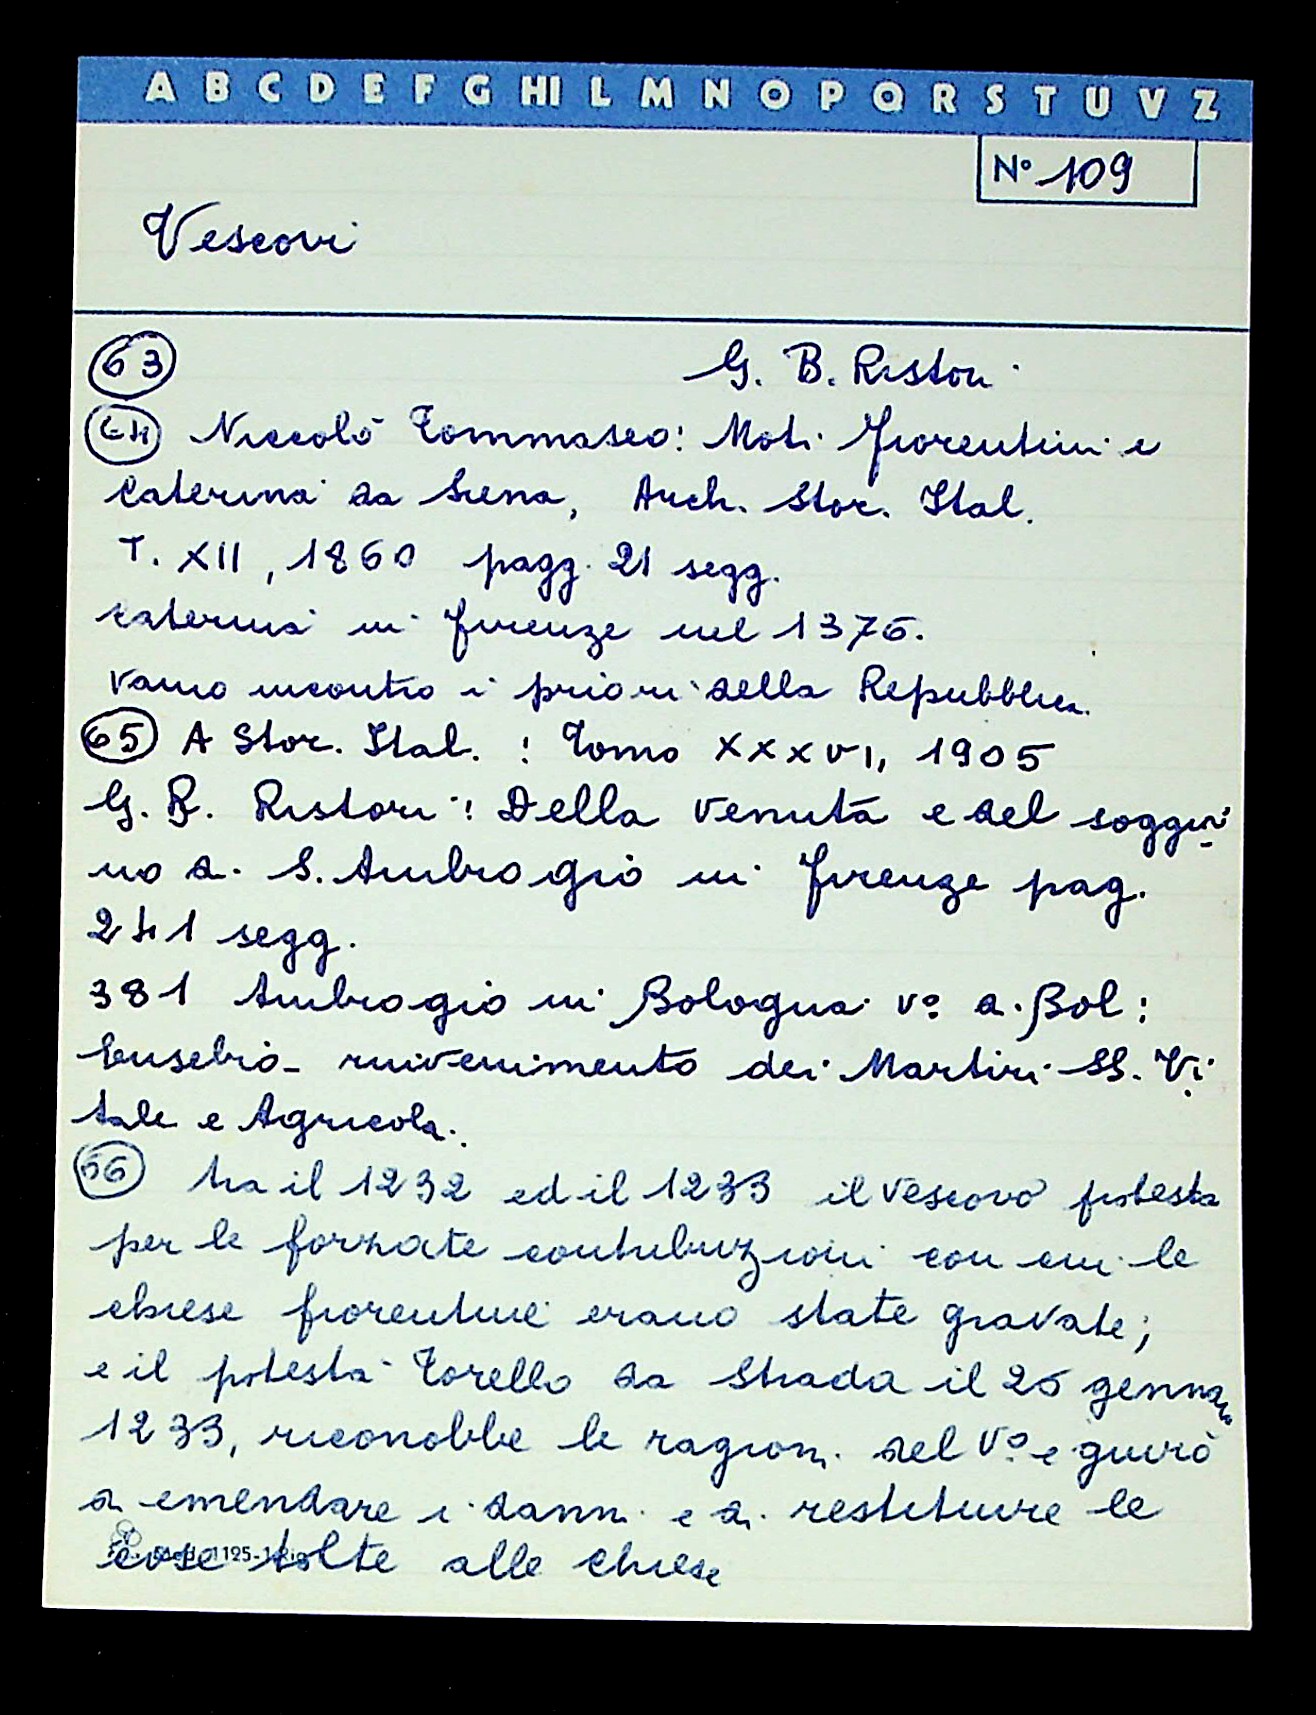 A B C D E F G HI L M N O P Q R S T U V Z
N° 109
Vescovi
63 G. B. Ristori
64 Niccolò Tommaseo: Moti fiorentini e
Caterina da Siena, Arch. Stor. Ital.
T. XII, 1860 pagg. 21 segg.
Caterina in Firenze nel 1376.
Vanno incontro i priori della Repubblica.
65 A Stor. Ital. : Tomo XXXVI, 1905
G. B. Ristori: Della venuta e del soggior
no di S. Ambrogio in Firenze pag.
241 segg.
381 Ambrogio in Bologna v° di Bol:
Eusebio - rinvenimento dei Martiri SS. Vi
tale e Agricola.
66 tra il 1232 ed il 1233 il Vescovo protesta
per le forzate contribuzioni con cui le
chiese fiorentine erano state gravate;
e il potestà Torello da Strada il 26 gennaio
1233, riconobbe le ragioni del V° e giurò
di emendare i danni e di restituire le
cose tolte alle chiese
1125-1